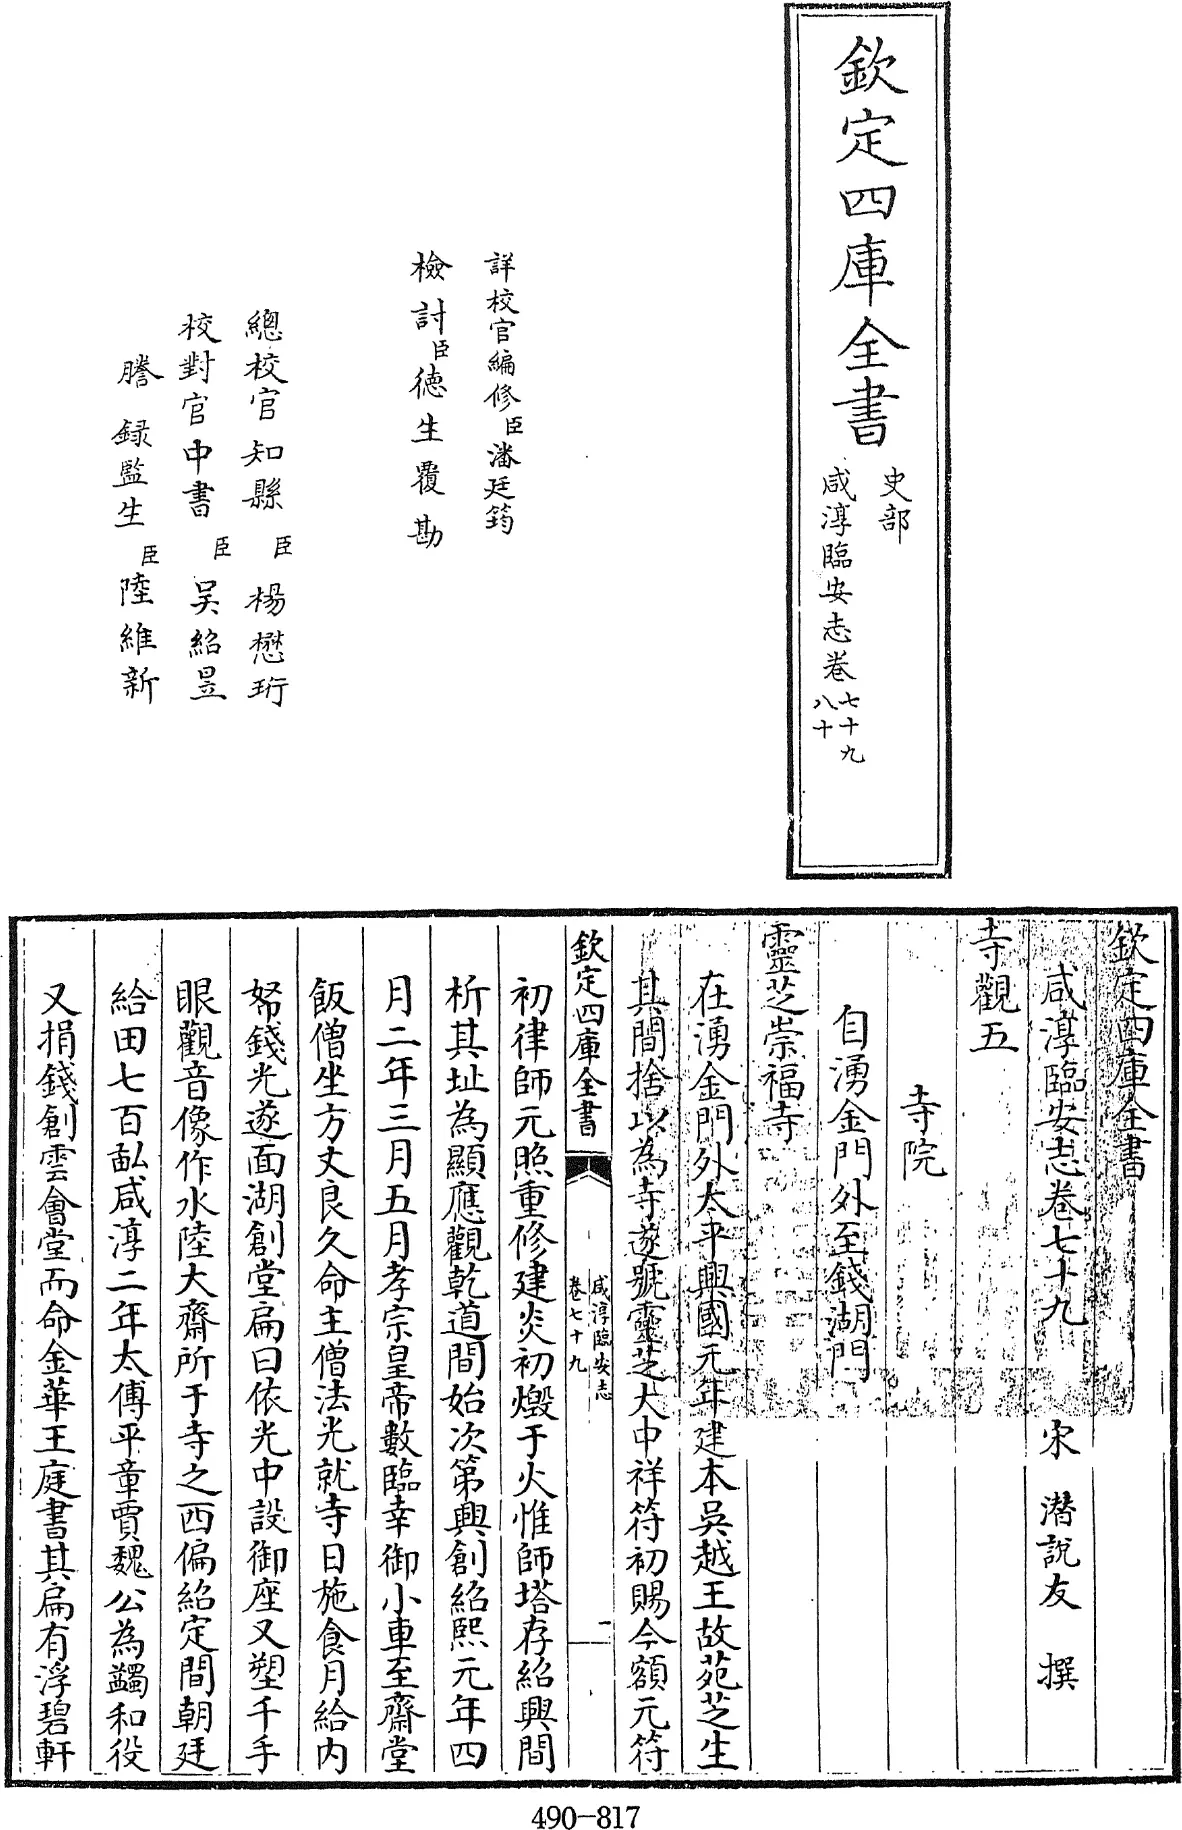 欽定四庫全書
史部
咸淳臨安志卷七十九
八十
詳校官編修臣潘廷筠
檢討臣德生覆勘
總校官知縣臣楊懋珩
校對官中書臣吳紹昱
謄錄監生臣陸維新
欽定四庫全書
咸淳臨安志卷七十九 宋 潛說友 撰
寺觀五
寺院
自湧金門外至錢湖門
靈芝崇福寺
在湧金門外太平興國元年建本吳越王故苑芝生
其間捨以為寺遂號靈芝大中祥符初賜今額元符
欽定四庫全書
咸淳臨安志
卷七十九
一
初律師元照重修建炎初燬于火惟師塔存紹興間
析其址為顯應觀乾道間始次第興創紹熙元年四
月二年三月五月孝宗皇帝數臨幸御小車至齋堂
飯僧坐方丈良久命主僧法光就寺日施食月給内
帑錢光遂面湖創堂扁曰依光中設御座又塑千手
眼觀音像作水陸大齋所于寺之西偏紹定間朝廷
給田七百畝咸淳二年太傅平章賈魏公為蠲和役
又捐錢創雲會堂而命金華王庭書其扁有浮碧軒
490-817